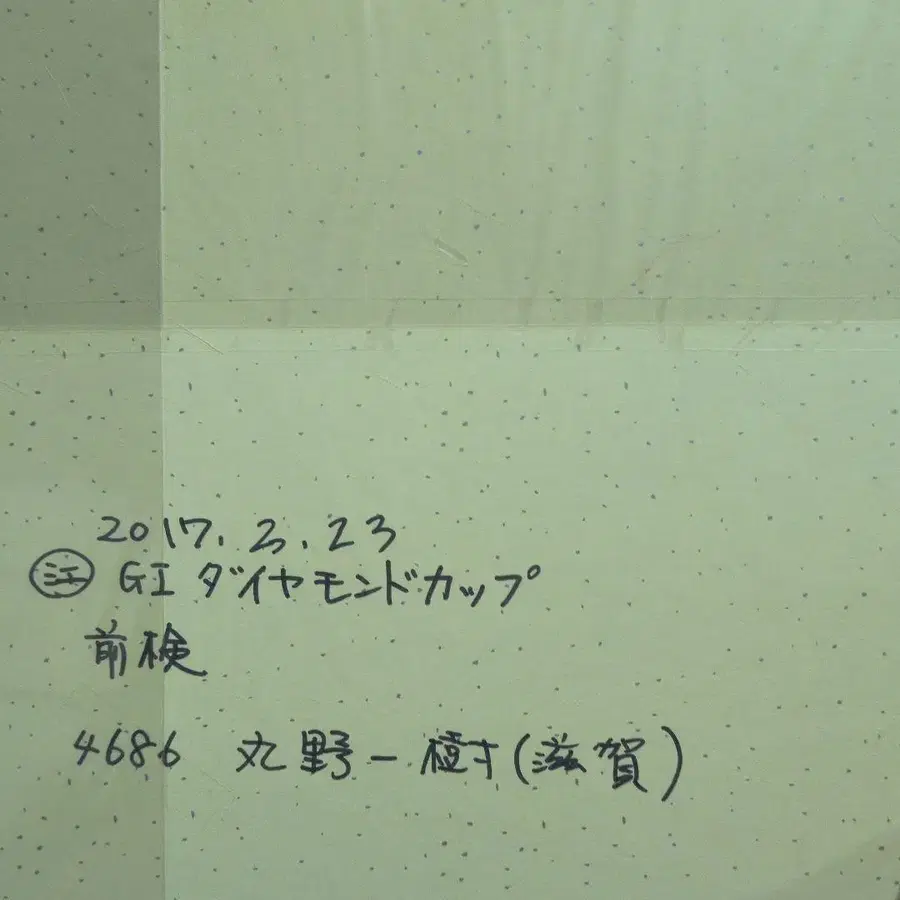 2017.2.23
㊋江 GI ダイヤモンドカップ
前検
4686 丸野一樹(滋賀)